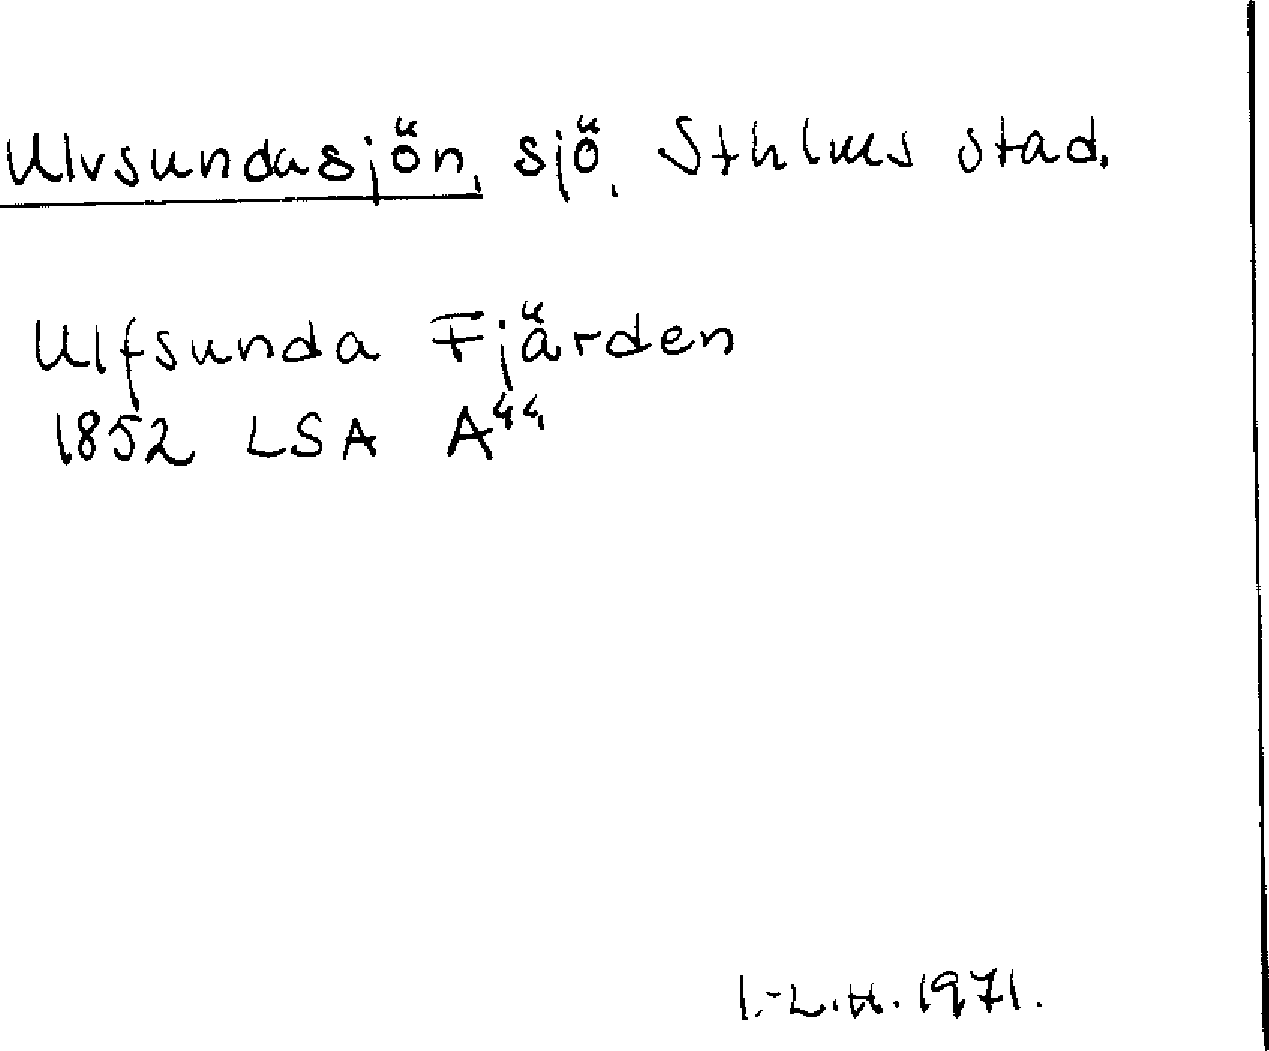 Ulvsundasjön, sjö, Sthlms stad.
Ulfsunda Fjärden
1852 LSA A⁴⁴
I.-L.H. 1971.